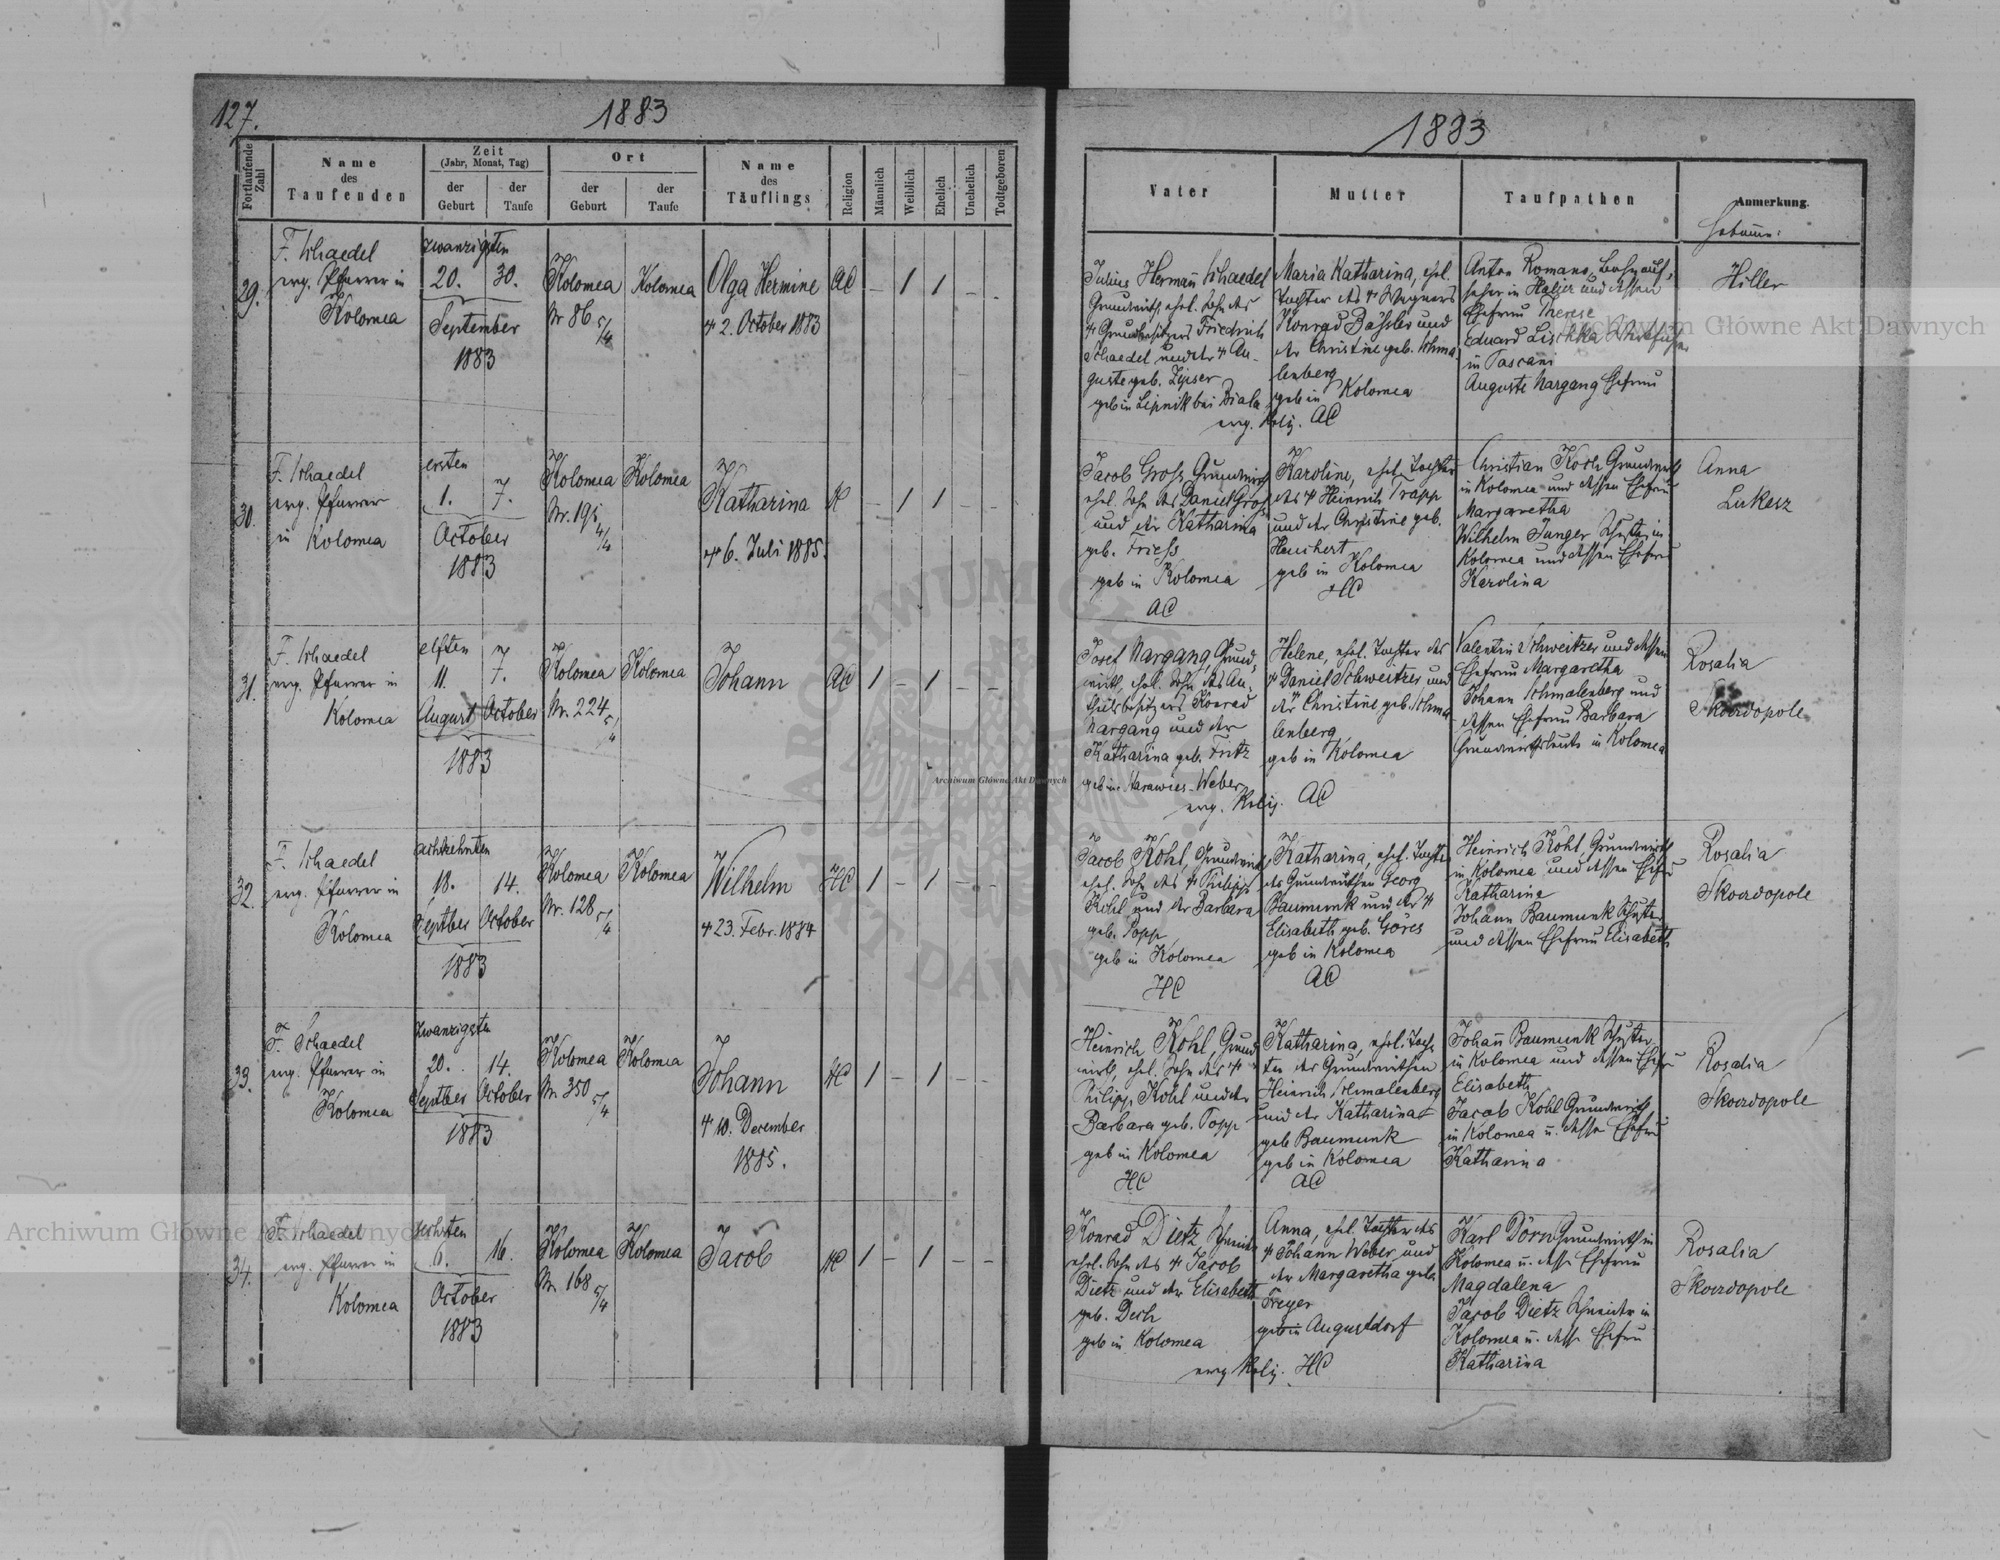 127.
1883
Fortlaufende Zahl
Name des Taufenden
Zeit
(Jahr, Monat, Tag)
der Geburt
der Taufe
Ort
der Geburt
der Taufe
Name des Täuflings
Religion
Männlich
Weiblich
Ehelich
Unehelich
Todtgeboren
29.
F. Schaedel
evg. Pfarrer in
Kolomea
zwanzigsten
20. 30.
September
1883
Kolomea
Nr 86 5/4
Kolomea
Olga Hermine
† 2. October 1883
AC
- 1 1 - -
30.
F. Schaedel
evg. Pfarrer
in Kolomea
ersten
1. 7.
October
1883
Kolomea
Nr. 195
4/4
Kolomea
Katharina
† 6. Juli 1885.
HC
- 1 1 - -
31.
F. Schaedel
evg. Pfarrer in
Kolomea
elften
11. 7.
August October
1883
Kolomea
Nr. 224 5/4
Kolomea
Johann
AC
1 - 1 - -
32.
F. Schaedel
evg. Pfarrer in
Kolomea
achtzehnten
18. 14.
Septber October
1883
Kolomea
Nr. 128 5/4
Kolomea
Wilhelm
† 23. Febr. 1884
HC
1 - 1 - -
33.
F. Schaedel
evg. Pfarrer in
Kolomea
zwanzigsten
20. 14.
Septber October
1883
Kolomea
Nr. 350 5/4
Kolomea
Johann
† 10. December
1885.
HC
1 - 1 - -
34.
F. Schaedel
evg. Pfarrer in
Kolomea
sechsten
6. 16.
October
1883
Kolomea
Nr. 168 5/4
Kolomea
Jacob
HC
1 - 1 - -
1883
Vater
Mutter
Taufpathen
Anmerkung.
Hebamme:
Julius Hermañ Schaedel
Grundwirth, ehel. Sohn des
† Grundbesitzers Friedrich
Schaedel und der † Au-
guste geb. Zipser
geb in Lipnik bei Biala
evg. Relig. AC
Maria Katharina, ehel.
Tochter des † Wagners
Konrad Bäßler und
der Christine geb. Schma-
lenberg
geb in Kolomea
Anton Romano, Bahnauf-
seher in Halicz und dessen
Ehefrau Therese
Eduard Lischka Werkführer
in Pascani
Auguste Nargang Ehefrau
Hiller
Jacob Groß Grundwirth
ehel. Sohn des Daniel Groß
und der Katharina
geb. Frieß
geb in Kolomea
AC
Karoline, ehel. Tochter
des † Heinrich Trapp
und der Christine geb.
Heuchert
geb in Kolomea
HC
Christian Koch Grundwirth
in Kolomea und dessen Ehefrau
Margaretha
Wilhelm Junger Schuster in
Kolomea und dessen Ehefrau
Karolina
Anna
Lukesz
Josef Nargang, Grund-
wirth, ehel. Sohn des An-
theilsbesitzers Konrad
Nargang und der
Katharina geb. Fritz
evg. Relig. AC
Helene, ehel. Tochter des
† Daniel Schweitzer und
der Christine geb. Schma-
lenberg
geb in Kolomea
Valentin Schweitzer und dessen
Ehefrau Margaretha
Johann Schmalenberg und
dessen Ehefrau Barbara
Grundwirthsleute in Kolomea
Rosalia
Skordopole
Jacob Kohl, Grundwirth
ehel. Sohn des † Philipp
Kohl und der Barbara
geb. Popp
geb in Kolomea
HC
Katharina, ehel. Tochter
des Grundwirthen Georg
Baumunk und der †
Elisabeth geb. Göres
geb in Kolomea
AC
Heinrich Kohl Grundwirth
in Kolomea und dessen Ehefrau
Katharina
Johann Baumunk Schuster
und dessen Ehefrau Elisabeth
Rosalia
Skordopole
Heinrich Kohl, Grund-
wirth, ehel. Sohn des †
Philipp Kohl und der
Barbara geb. Popp
geb in Kolomea
HC
Katharina, ehel. Toch-
ter des Grundwirthen
Heinrich Schmalenberg
und der Katharina
geb Baumunk
geb in Kolomea
AC
Johañ Baumunk Schuster
in Kolomea und dessen Ehefrau
Elisabeth
Jacob Kohl Grundwirth
in Kolomea u. dessen Ehefrau
Katharina
Rosalia
Skordopole
Konrad Dietz Schneider
ehel. Sohn des † Jacob
Dietz und der Elisabeth
geb. Desh
geb in Kolomea
evg. Relig. HC
Anna, ehel. Tochter des
† Johann Weber und
der Margaretha geb.
Freyer
geb in Augustdorf
Karl Dörn Grundwirth in
Kolomea u. dessen Ehefrau
Magdalena
Jacob Dietz Schneider in
Kolomea u. dessen Ehefrau
Katharina
Rosalia
Skordopole
Archiwum Główne Akt Dawnych
Archiwum Główne Akt Dawnych
Archiwum Główne Akt Dawnych